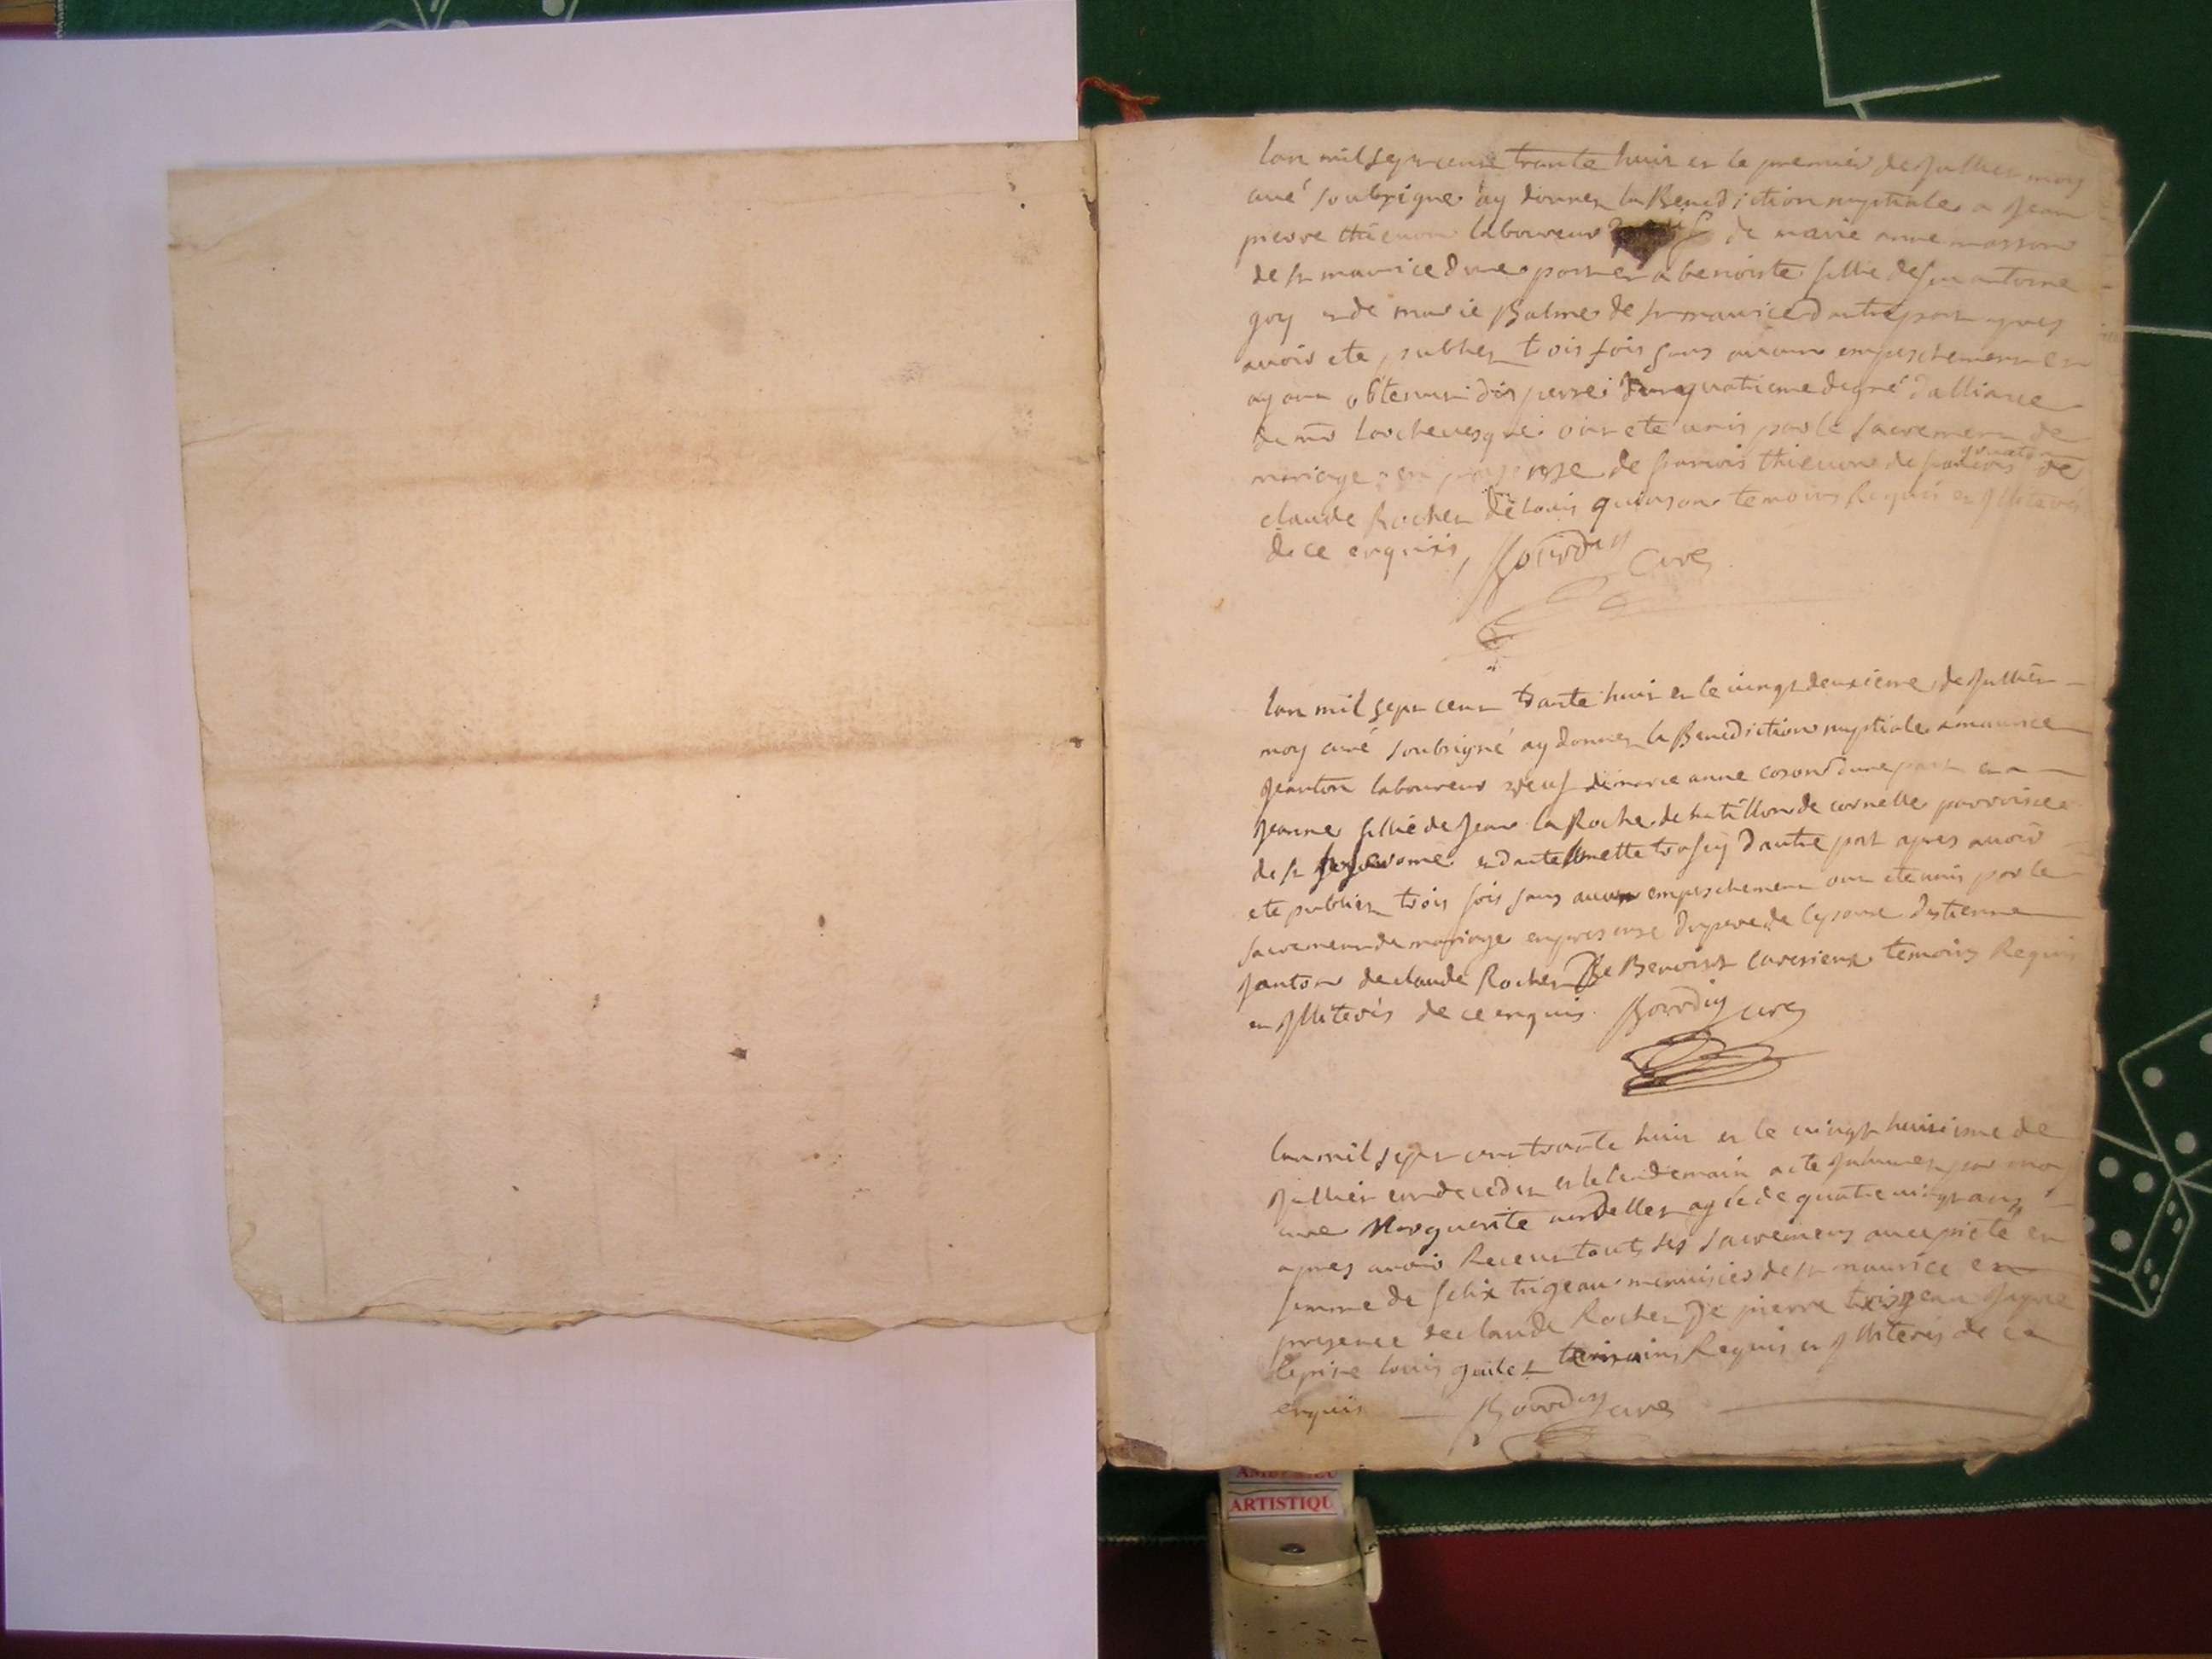 lan mil sept cent trante huit et le premier de Jullier moy
curé soubsigné ay donnez la Benediction nuptiales a Jean
pierre thievon laboureur de marie anne masson
de st maurice dune part et a benoiste fillie de feu antoine
goy et de marie Balme de st maurice dautre part apres
avoir ete publiez trois fois sans aucun empeschement et
ayant obtenu dispense dun quatrieme degré dalliance
de mr larchevesque ont ete unis par le sacrement de
mariage en presense de francois thievon de francois de
claude Rochet de louis quinson temoins Requis et Illiteres
de ce enquis, Bourdin Curé
lan mil sept cent trante huit et le vingt deuxieme de Jullier
moy curé soubsigné ay donnez la Benediction nuptiale a maurice
Jeanton laboureur veuf de marie anne coron dune part et a
Jeanne fillie de Jean la Roche de chatillon de cornelle parroisse
de st Jerome et dantelmette dautre part apres avoir
ete publiez trois fois sans aucun empeschement ont ete unis par le
sacrement de mariage en presense de destienne
Janton de claude Rochet De Benoist temoins Requis
et Illiteres de ce enquis Bourdin curé
lan mil sept cent trante huit et le vingt huitieme de
Jullier est decedez et le lendemain a ete Inhumez par moy
curé Marguerite agée de quatre vingt ans
apres avoir Receu tout ses sacremens avec pieté et
femme de felix menuisier de st maurice en
presence de claude Rochet De pierre
louis temoins Requis et Illiteres de ce
enquis Bourdin curé
ARTISTIQU